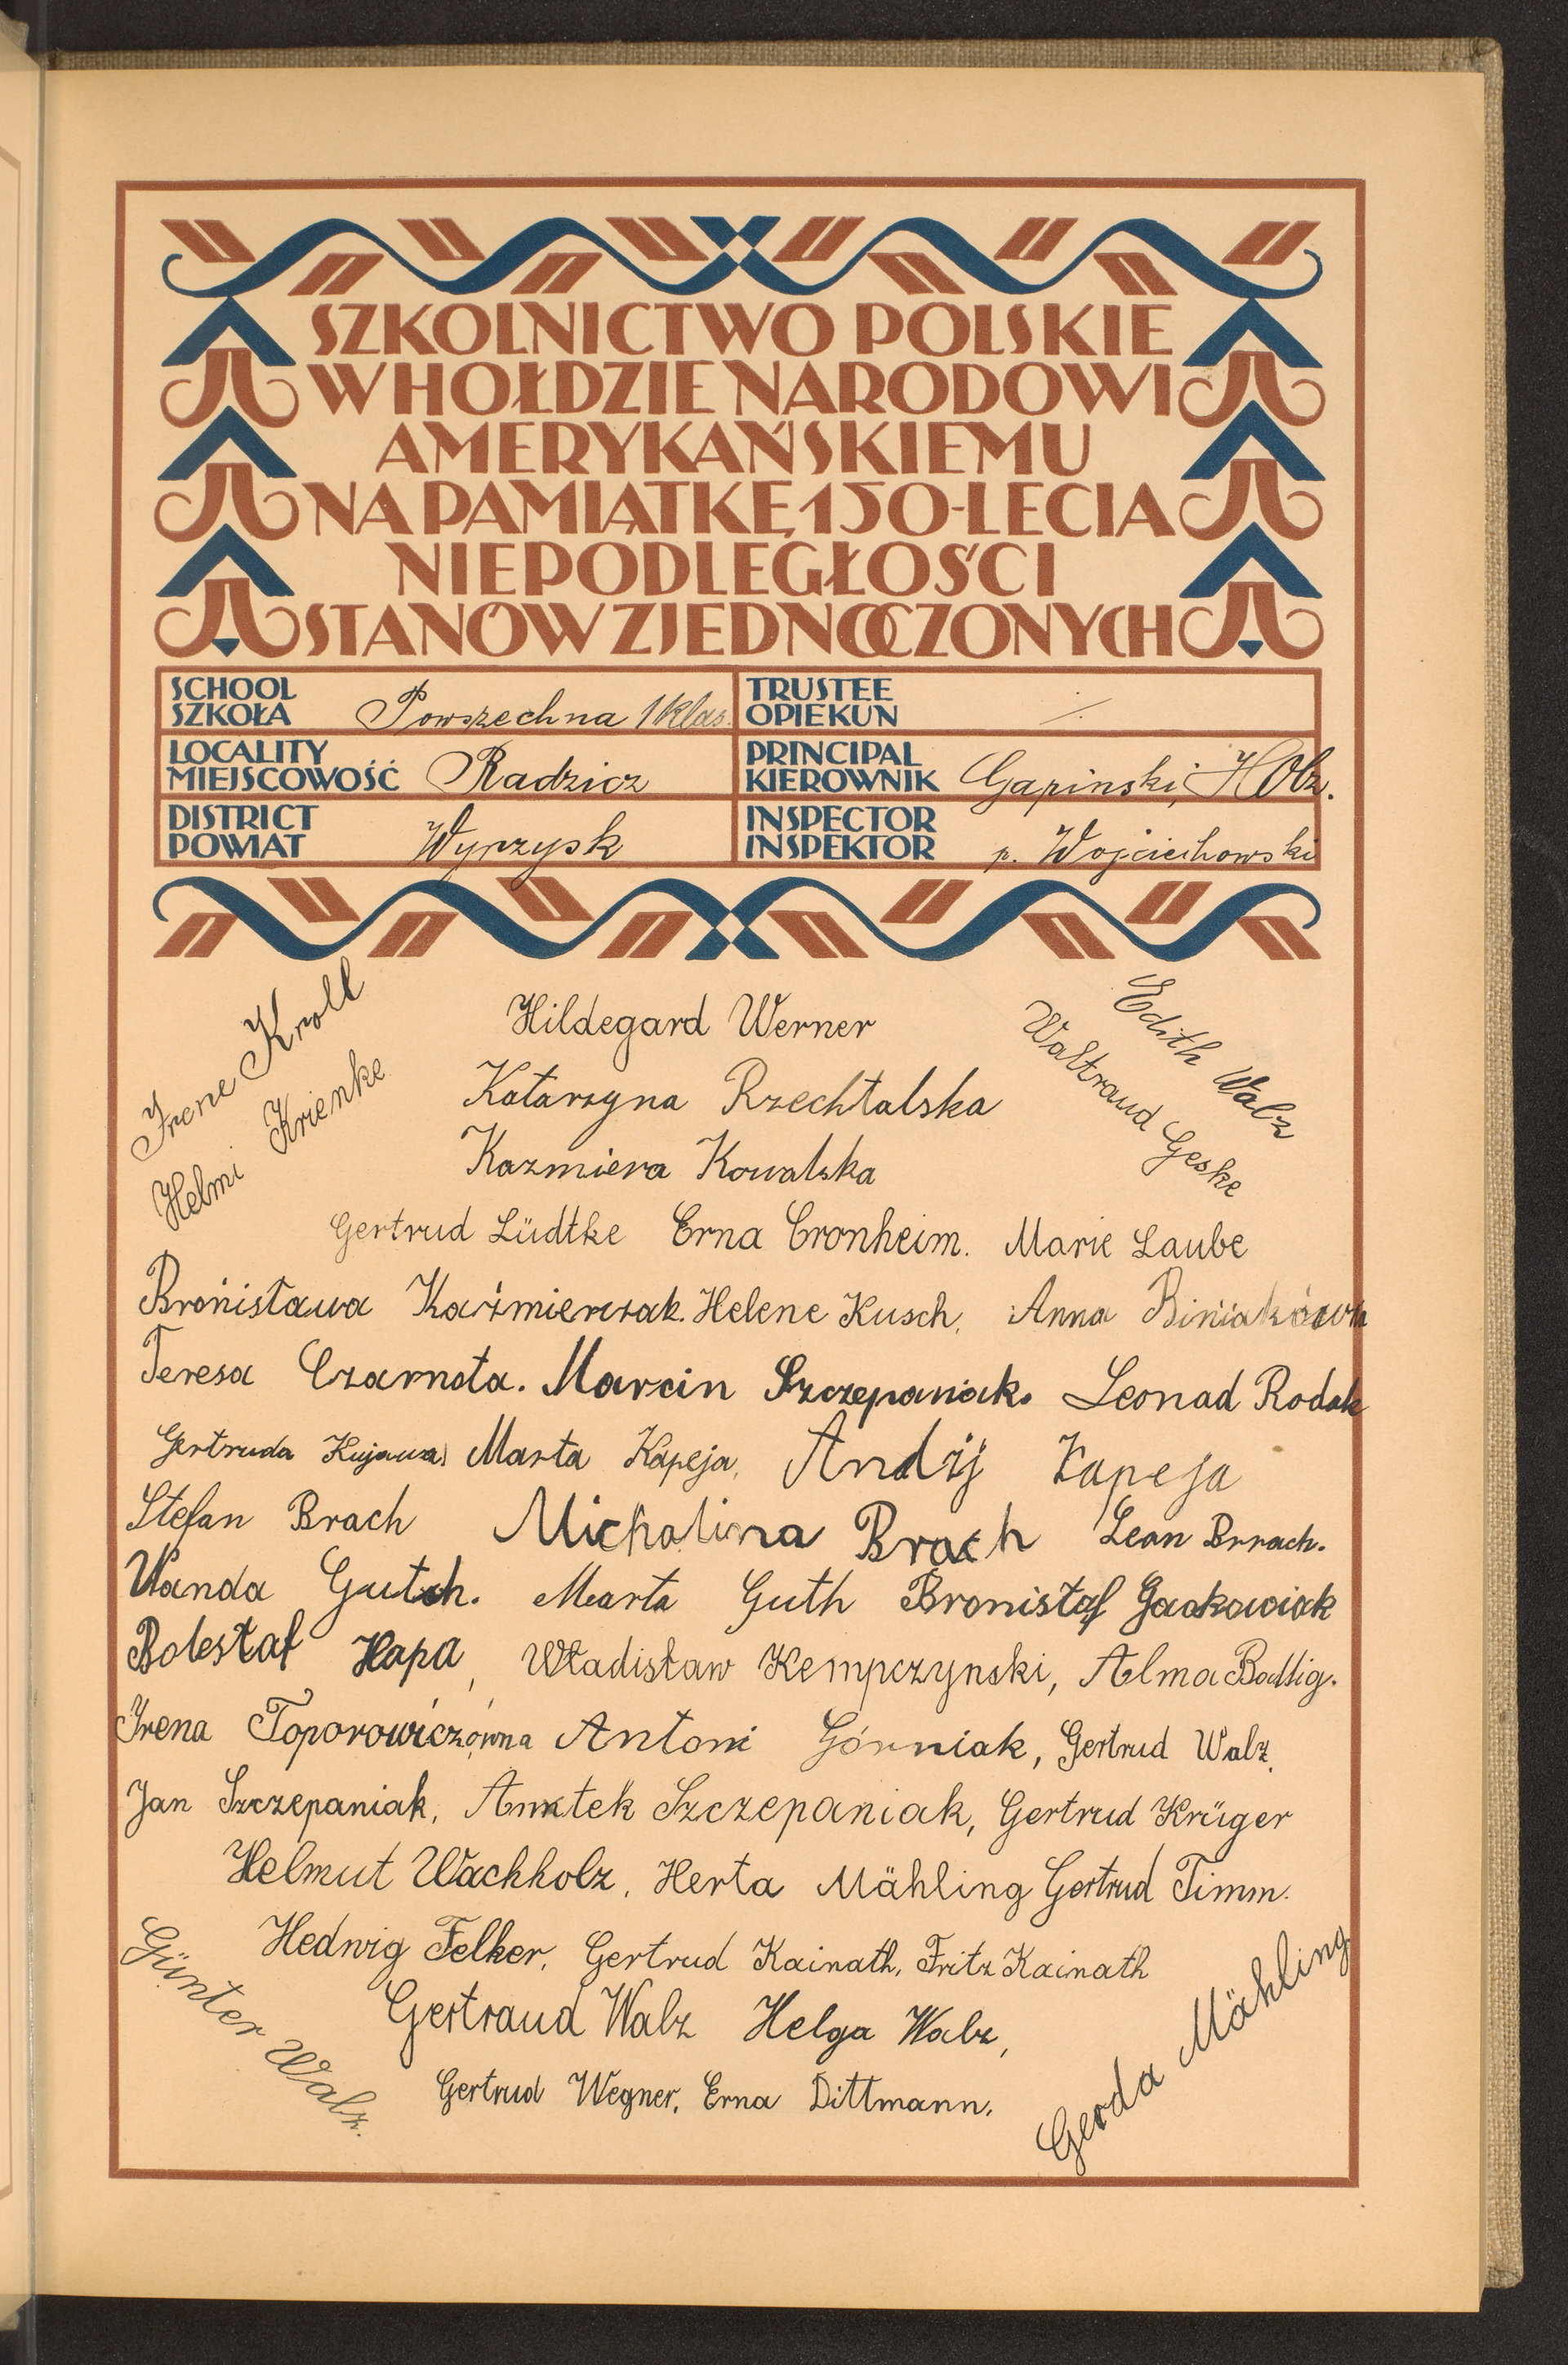 SZKOLNICTWO POLSKIE
W HOŁDZIE NARODOWI
AMERYKAŃSKIEMU
NA PAMIĄTKĘ 150-LECIA
NIEPODLEGŁOŚCI
STANÓW ZJEDNOCZONYCH
SCHOOL
SZKOŁA Powszechna 1 klas.
TRUSTEE
OPIEKUN
LOCALITY
MIEJSCOWOŚĆ Radzicz
PRINCIPAL
KIEROWNIK Gapinski,
DISTRICT
POWIAT Wyrzysk
INSPECTOR
INSPEKTOR p. Wojciechowski
Irene Kroll
Helmi Krienke
Hildegard Werner
Edith Walz
Waltraud Geske
Katarzyna Rzechtalska
Kazmiera Kowalska
Gertrud Lüdtke Erna Cronheim. Marie Laube
Bronisława Kaźmierczak. Helene Kusch, Anna Biniakówna
Teresa Czarnota. Marcin Szczepaniak. Leonad Rodak
Gertruda Kujawa, Marta Kapeja, Andżij Kapeja
Stefan Brach Michalina Brach Leon Brrach.
Wanda Gutch. Marta Guth Bronisłaf Gackowiak
Bolesłaf Hapa, Władisław Kempczynski, Alma Badtig.
Irena Toporowiczówna Antoni Górniak, Gertrud Walz,
Jan Szczepaniak, Anntek Szczepaniak, Gertrud Krüger
Helmut Wachholz, Herta Mähling Gertrud Timm.
Hedwig Felker, Gertrud Kainath, Fritz Kainath
Gertraud Walz Helga Walz,
Günter Walz.
Gertrud Wegner, Erna Dittmann.
Gerda Mähling